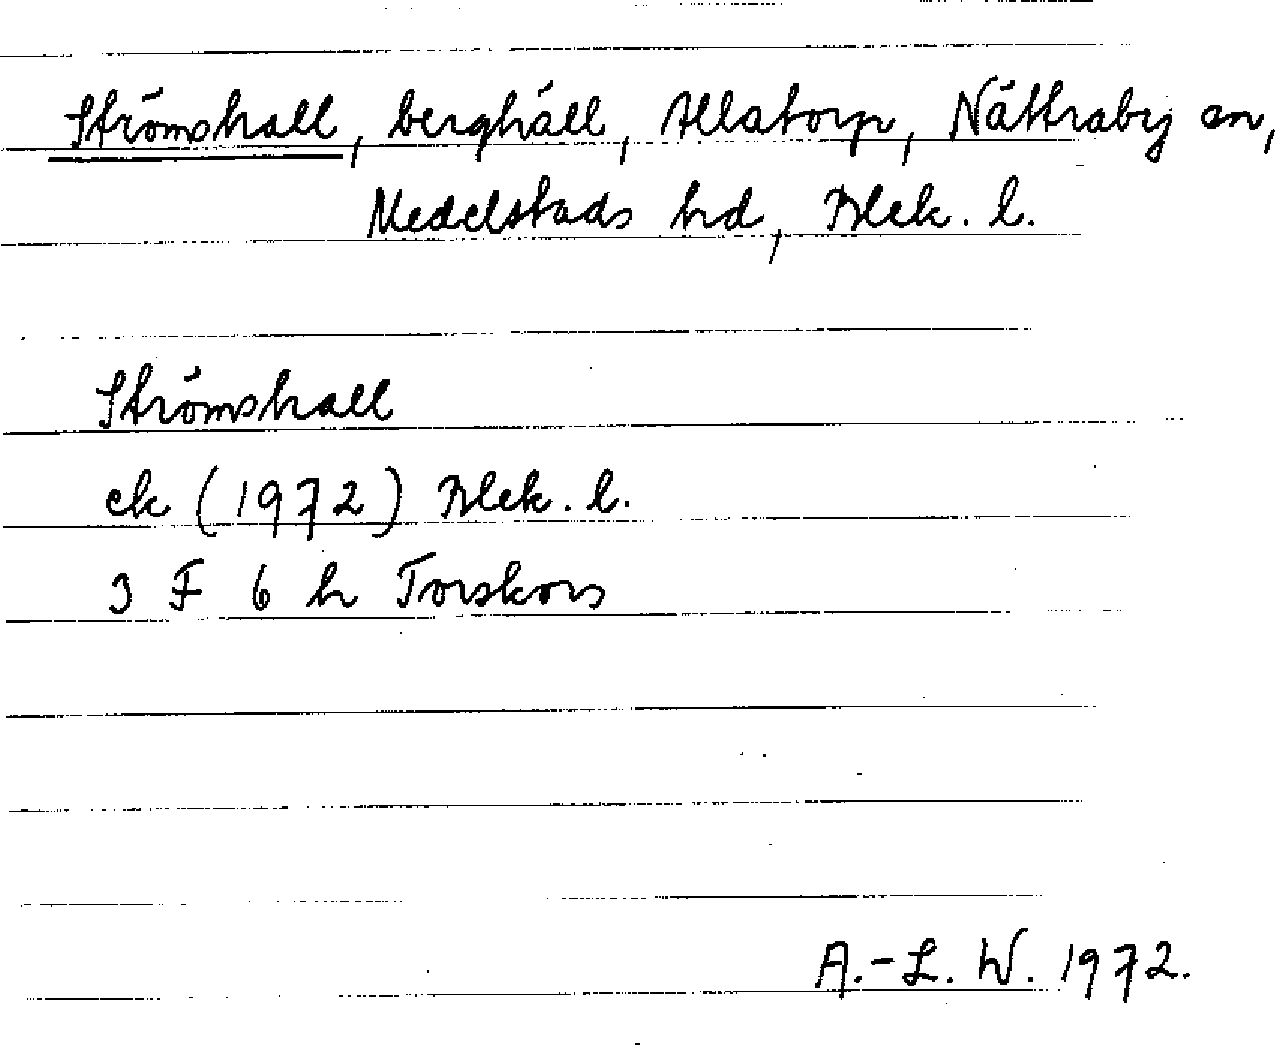 Strömshall, berghäll, Allatorp, Nättraby sn,
Medelstads hd, Blek. l.
Strömshall
ek (1972) Blek. l.
3 F 6 h Torskors
A.-L. W. 1972.